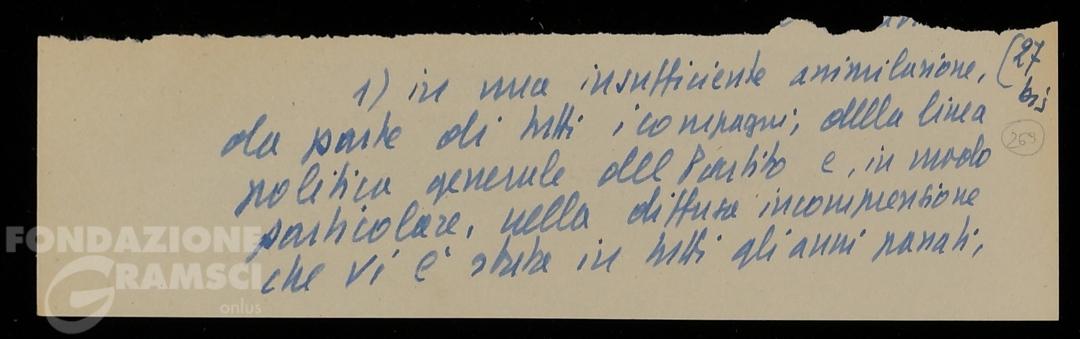 (27
bis
269
1) in una insufficiente assimilazione,
da parte di tutti i compagni, della linea
politica generale del Partito e, in modo
particolare, nella diffusa incomprensione
che vi è stata in tutti gli anni passati,
FONDAZIONE
GRAMSCI
onlus